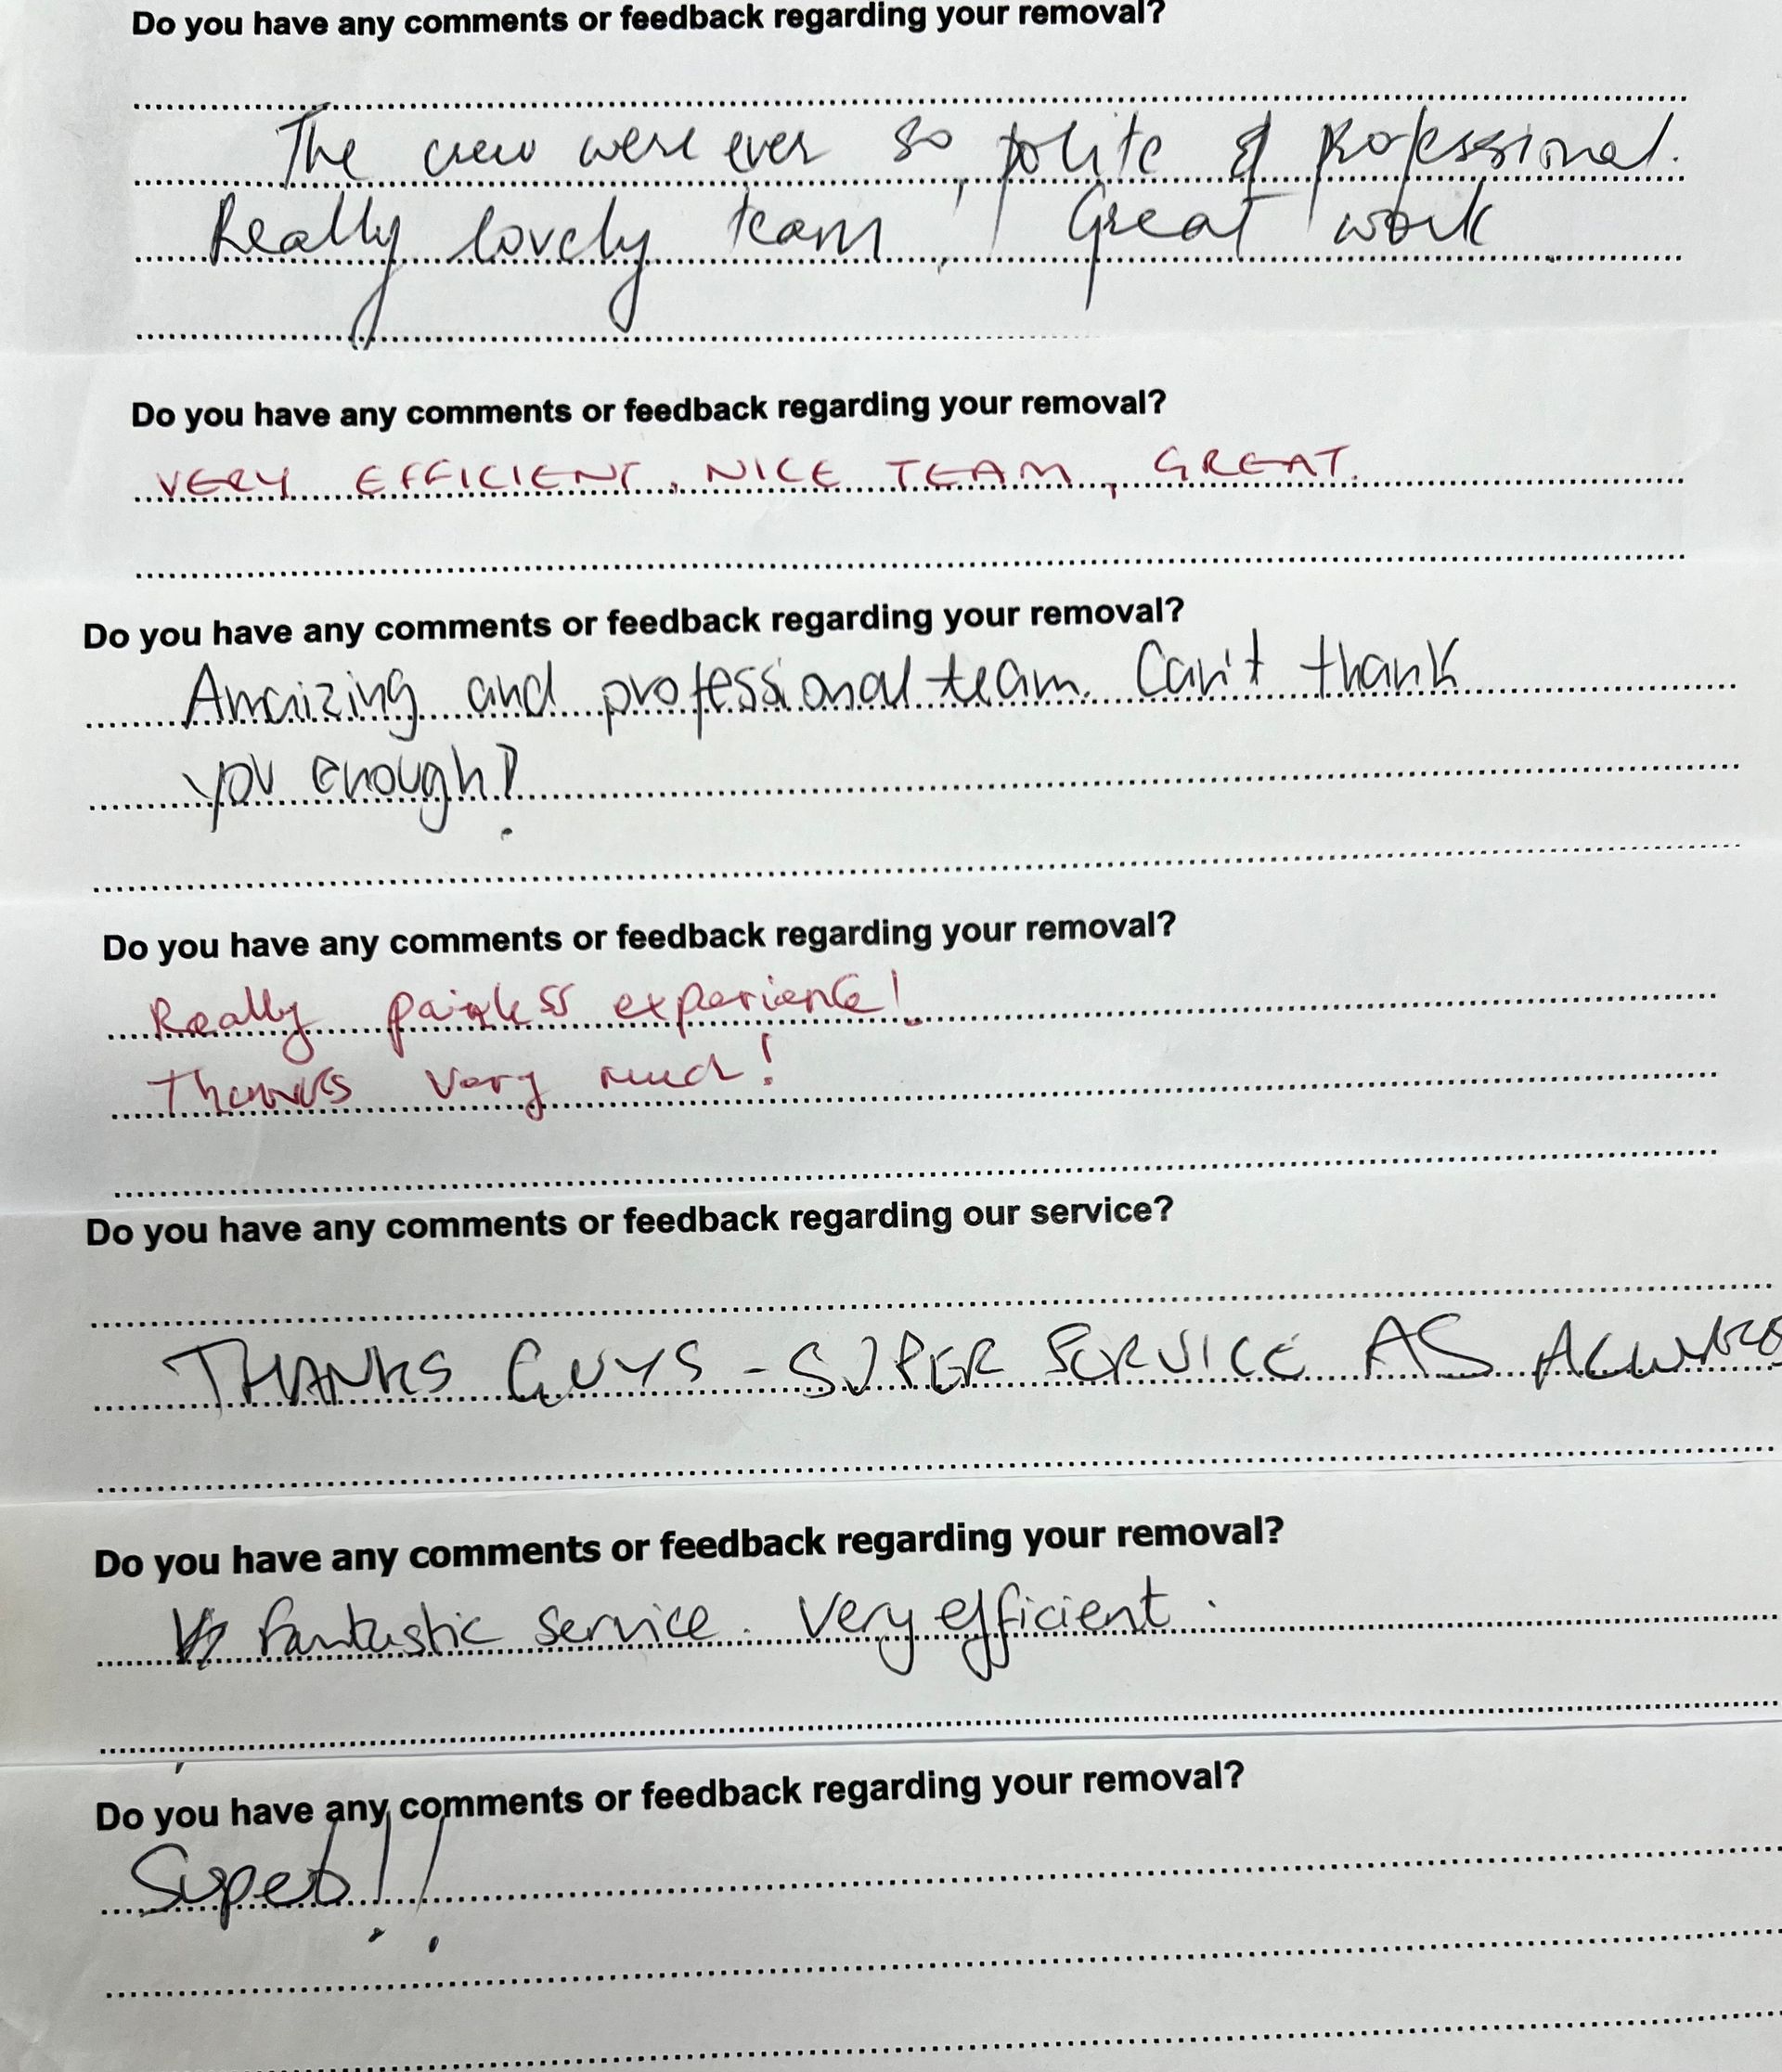 Do you have any comments or feedback regarding your removal?
The crew were ever so polite & professional.
Really lovely team! Great work
Do you have any comments or feedback regarding your removal?
VERY EFFICIENT, NICE TEAM, GREAT.
Do you have any comments or feedback regarding your removal?
Amaizing and professional team. Can't thank
you enough!
Do you have any comments or feedback regarding your removal?
Really painless experience!
Thanks very much!
Do you have any comments or feedback regarding our service?
THANKS GUYS - SUPER SERVICE AS ALWAYS
Do you have any comments or feedback regarding your removal?
fantastic service. Very efficient.
Do you have any comments or feedback regarding your removal?
Superb!!